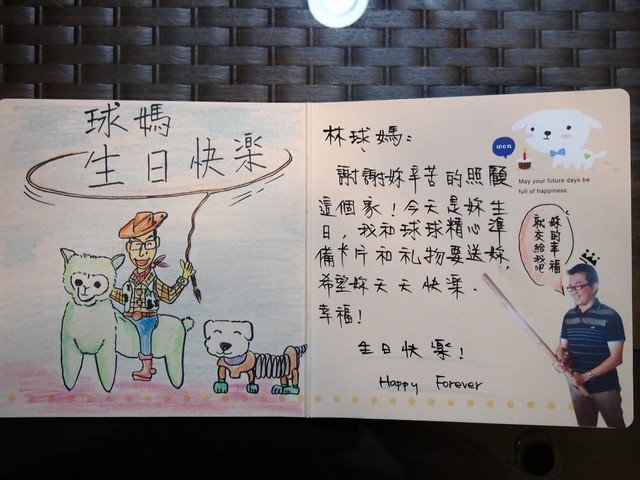 球媽
生日快樂
林球媽:
謝謝妳辛苦的照顧
這個家!今天是妳生
日,我和球球精心準
備卡片和礼物要送妳,
希望妳天天快樂.
幸福!
生日快樂!
Happy Forever
won
May your future days be
full of happiness.
妳的幸福
就交給我吧!